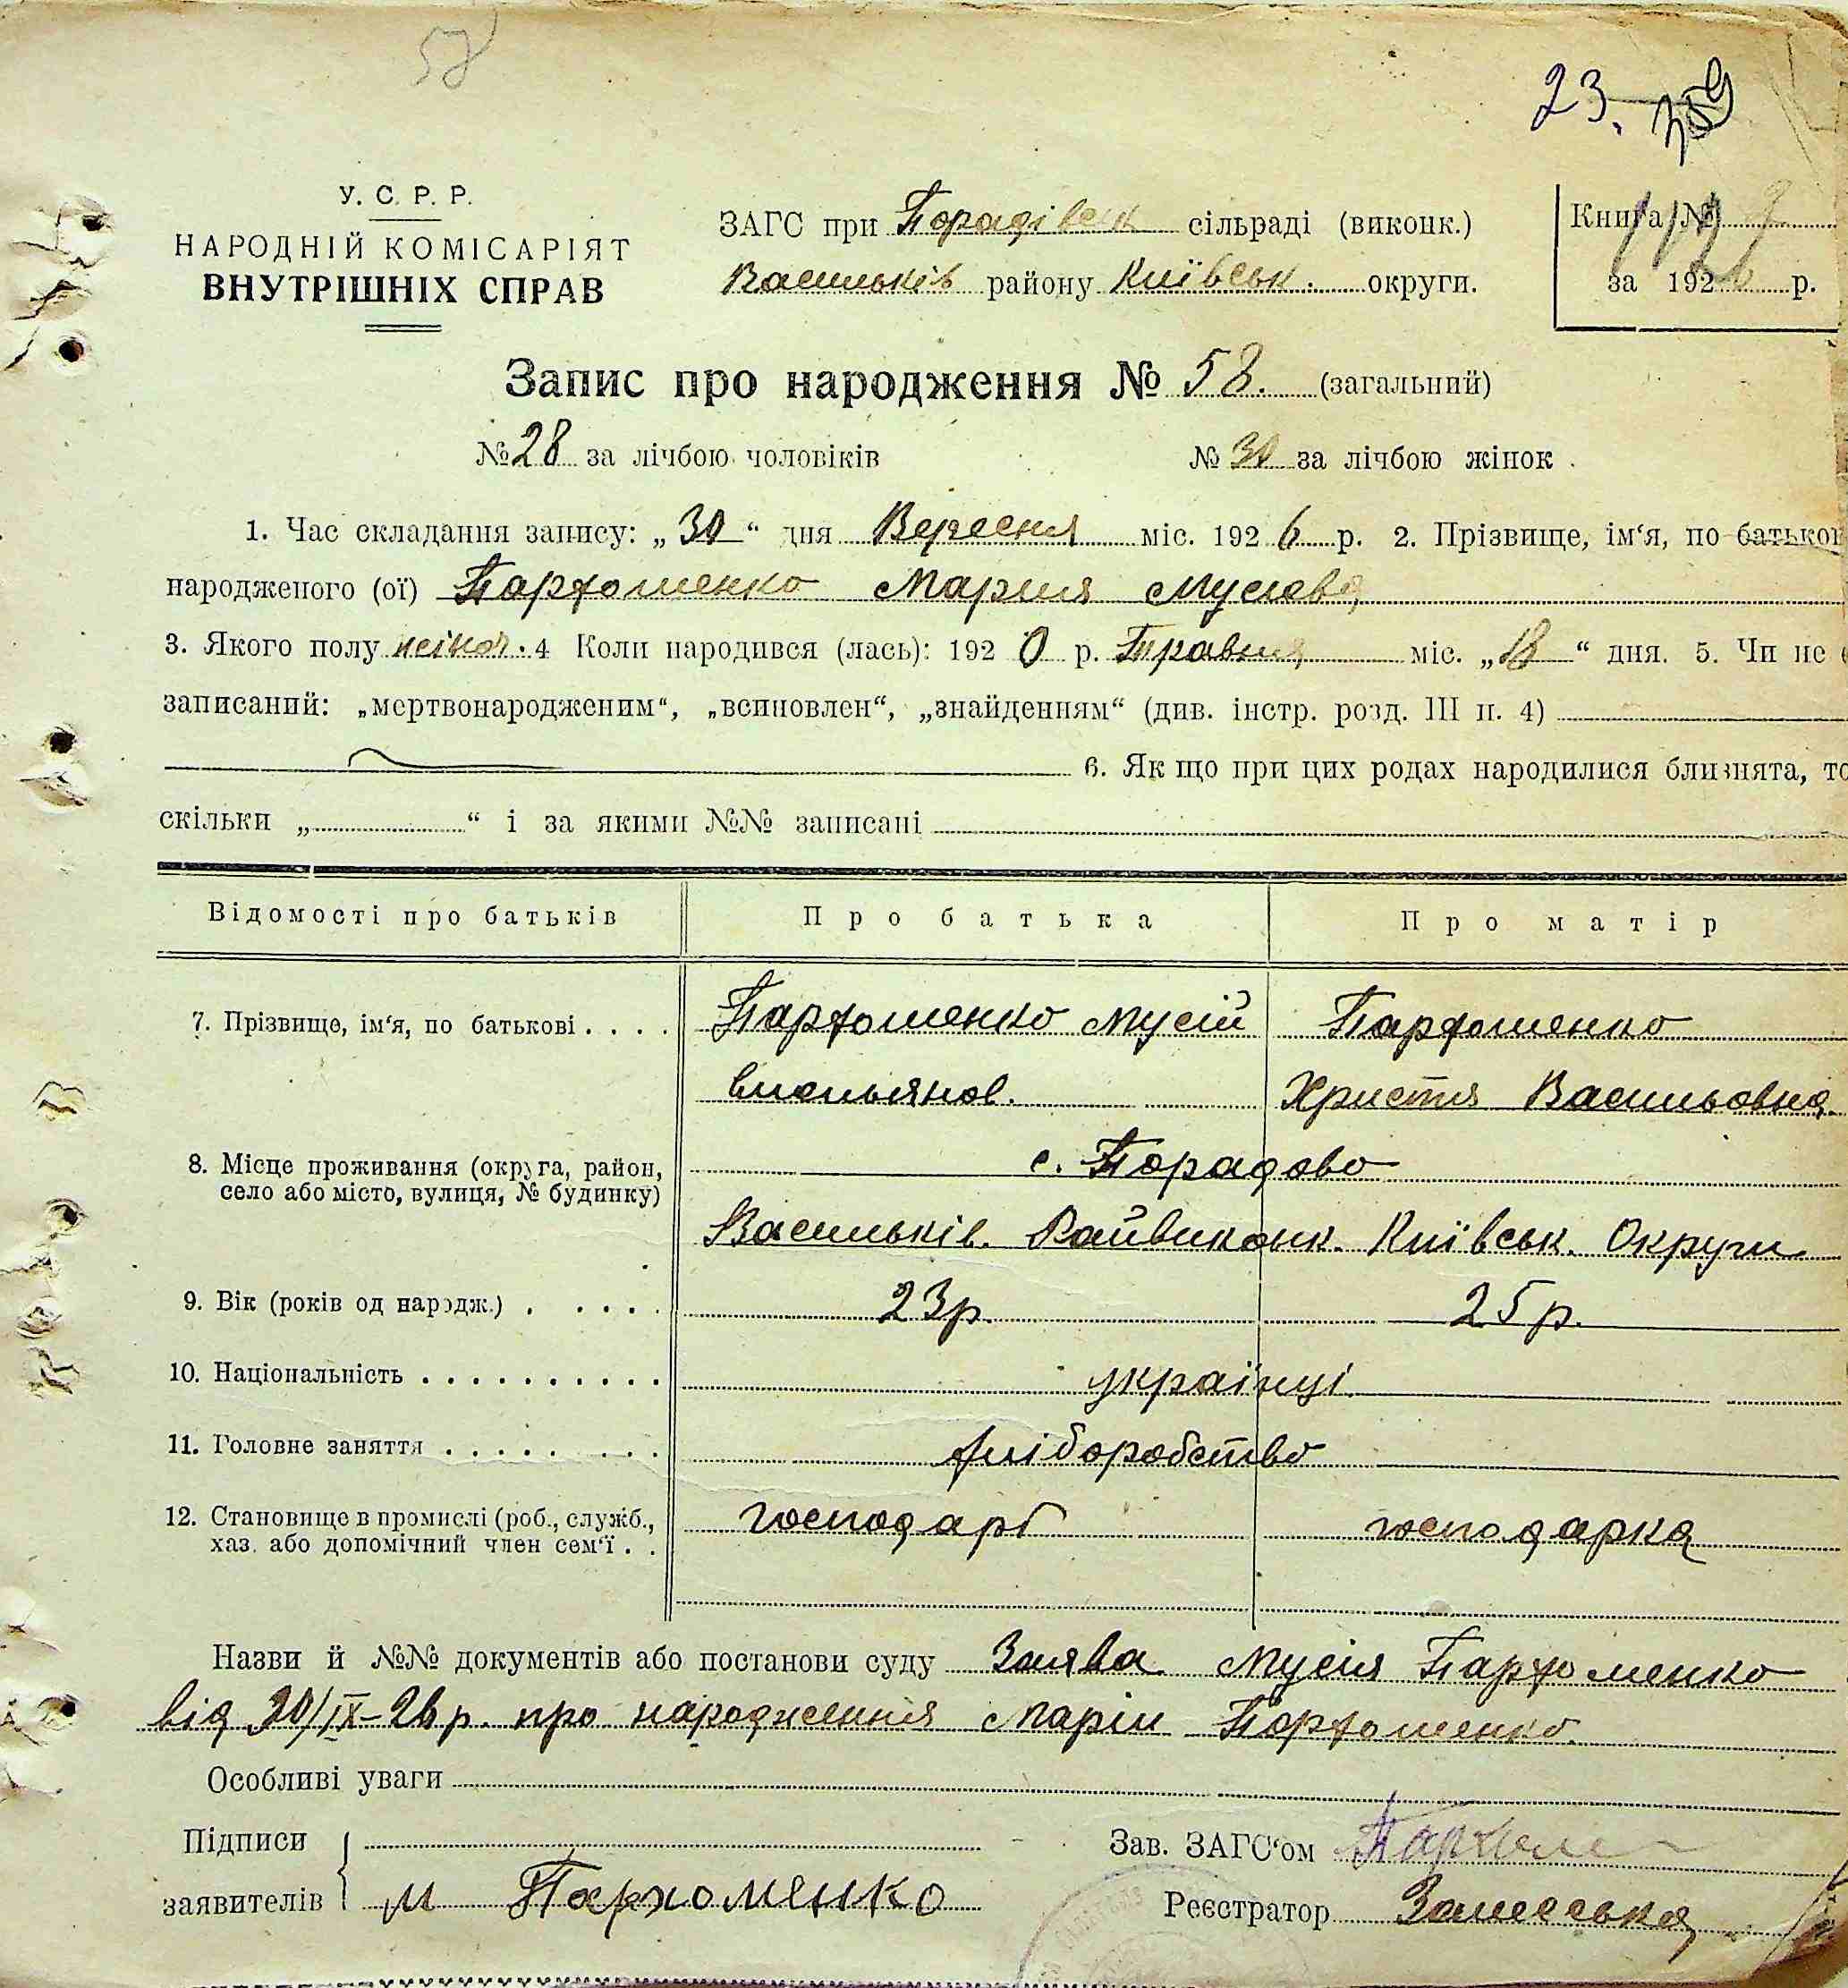 58
23. 
У. С. Р. Р.
НАРОДНІЙ КОМІСАРІЯТ
ВНУТРІШНІХ СПРАВ
ЗАГС при Порадівськ сільраді (виконк.)
Васильків району Київськ. округи.
Книга №
за 1926 р.
Запис про народження № 58. (загальний)
№ 28 за лічбою чоловіків № 30 за лічбою жінок
1. Час складання запису: „30“ дня Вересня міс. 1926 р. 2. Прізвище, ім‘я, по батькові
народженого (ої) Пархоменко Мария Мусієва
3. Якого полу жіноч. 4 Коли народився (лась): 1920 р. Травня міс. „18“ дня. 5. Чи не є
записаний: „мертвонародженим“, „всиновлен“, „знайденням“ (див. інстр. розд. III п. 4)
6. Як що при цих родах народилися близнята, то
скільки „ “ і за якими №№ записані
Відомості про батьків Про батька Про матір
7. Прізвище, ім‘я, по батькові . . . . Пархоменко Мусій Пархоменко
Христя Васильовна
8. Місце проживання (округа, район, с. Порадово
село або місто, вулиця, № будинку)
Васильків. Райвиконк. Київськ. Округи
9. Вік (років од народж.) . . . . . 23 р. 25 р.
10. Національність . . . . . . . . . . українці
11. Головне заняття . . . . . . . . хліборобство
12. Становище в промислі (роб., служб., господарь господарка
хаз. або допомічний член сем‘ї . .
Назви й №№ документів або постанови суду Заява Мусія Пархоменко
від 30/IX-26 р. про народження Марій Пархоменко.
Особливі уваги
Підписи
заявителів М Пархоменко
Зав. ЗАГС‘ом
Реєстратор